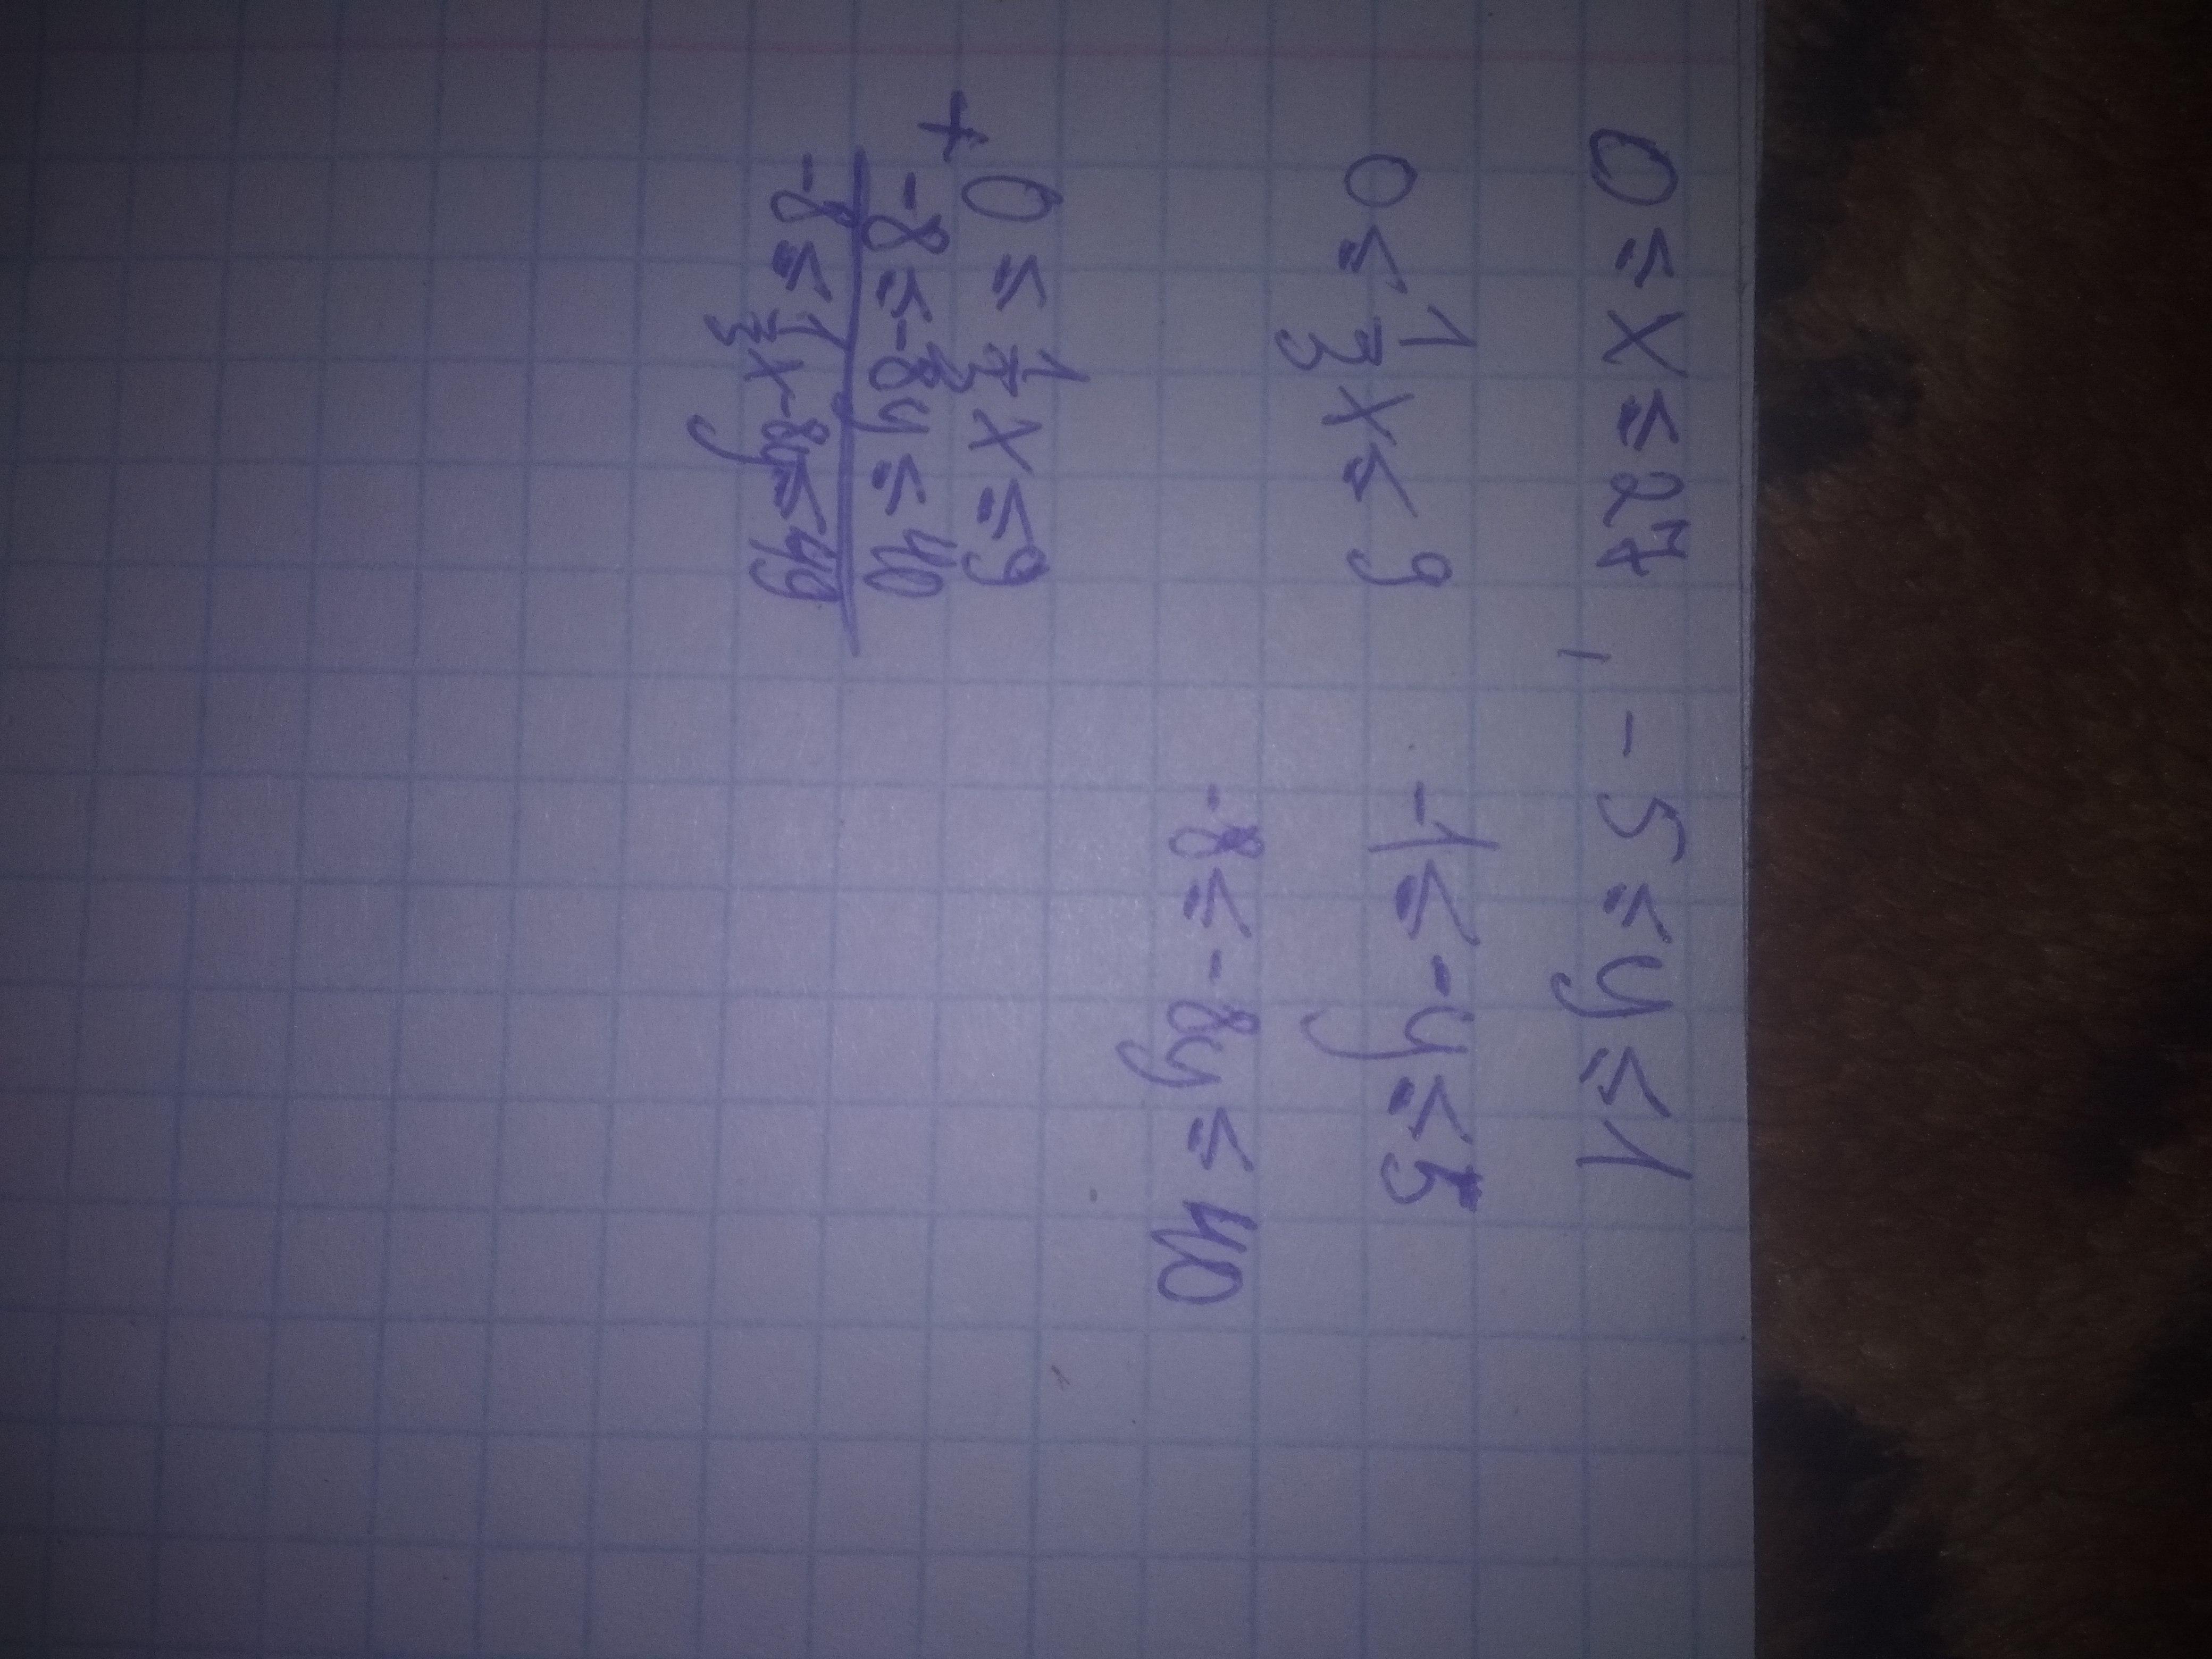 0 ≤ x ≤ 27, -5 ≤ y ≤ 1
0 ≤ 1/3 x ≤ 9 -1 ≤ -y ≤ 5
-8 ≤ -8y ≤ 40
+ 0 ≤ 1/3 x ≤ 9
-8 ≤ -8y ≤ 40
-8 ≤ 1/3 x - 8y ≤ 49